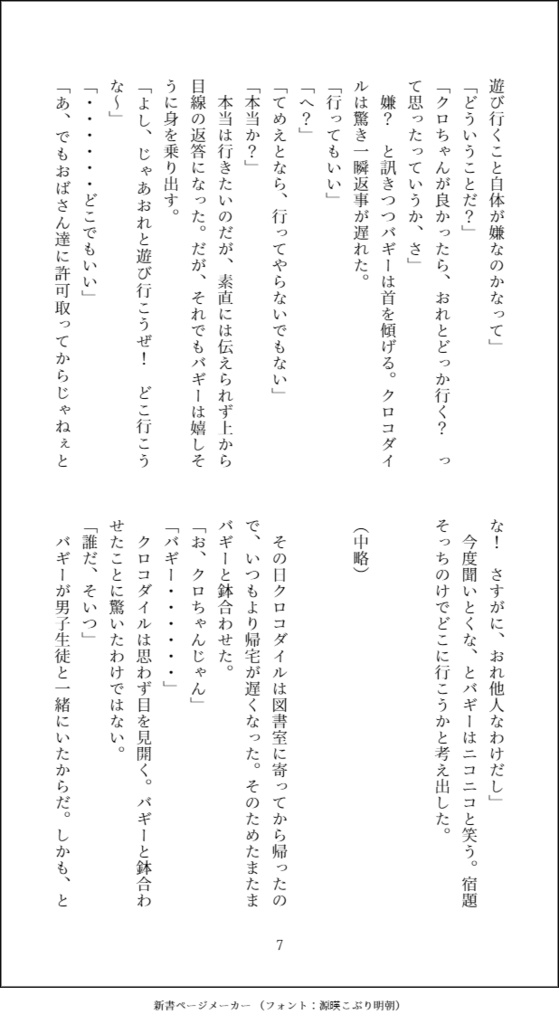 遊び行くこと自体が嫌なのかなって」
「どういうことだ？」
「クロちゃんが良かったら、おれとどっか行く？　っ
て思ったっていうか、さ」
　嫌？　と訊きつつバギーは首を傾げる。クロコダイ
ルは驚き一瞬返事が遅れた。
「行ってもいい」
「へ？」
「てめえとなら、行ってやらないでもない」
「本当か？」
　本当は行きたいのだが、素直には伝えられず上から
目線の返答になった。だが、それでもバギーは嬉しそ
うに身を乗り出す。
「よし、じゃあおれと遊び行こうぜ！　どこ行こう
な～」
「・・・・・・どこでもいい」
「あ、でもおばさん達に許可取ってからじゃねぇと
な！　さすがに、おれ他人なわけだし」
　今度聞いとくな、とバギーはニコニコと笑う。宿題
そっちのけでどこに行こうかと考え出した。
（中略）
　その日クロコダイルは図書室に寄ってから帰ったの
で、いつもより帰宅が遅くなった。そのためたまたま
バギーと鉢合わせた。
「お、クロちゃんじゃん」
「バギー・・・・・・」
　クロコダイルは思わず目を見開く。バギーと鉢合わ
せたことに驚いたわけではない。
「誰だ、そいつ」
　バギーが男子生徒と一緒にいたからだ。しかも、と
7
新書ページメーカー （フォント：源暎こぶり明朝）